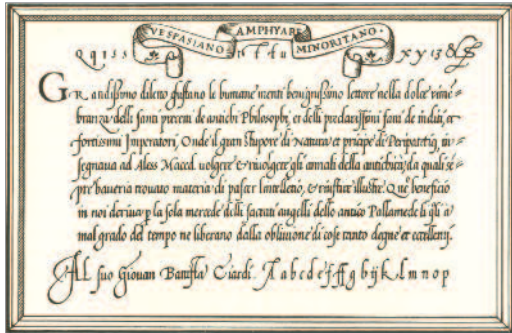 VESPASIANO AMPHYAREO MINORITANO
Q q i s s t t u x y z &
GRandissimo diletto gustano le humane menti benignissimo lettore nella dolce rime=
branza delli santi preceti de antichi Philosophi, et delli preclarissimi fatti de inditi, et
fortissimi Imperatori, Onde il gran stupore di Natura et pricipe di Peripatetici, in=
segnaua ad Aless Maced. volgere & riuolgere gli annali della antichità, da quali sē=
pre haueria trouato materia di pascer l'intelletto, & riuscire illustre. Que beneficio
in noi deriua p la sola mercede delli sacrati angelli dello antico Pallamede li qli a
mal grado del tempo ne liberano dalla obliuione di cose tanto degne et eccellenti.
Al suo Giouan Battista Ciardi. A a b c d e f ff g h i j k l m n o p